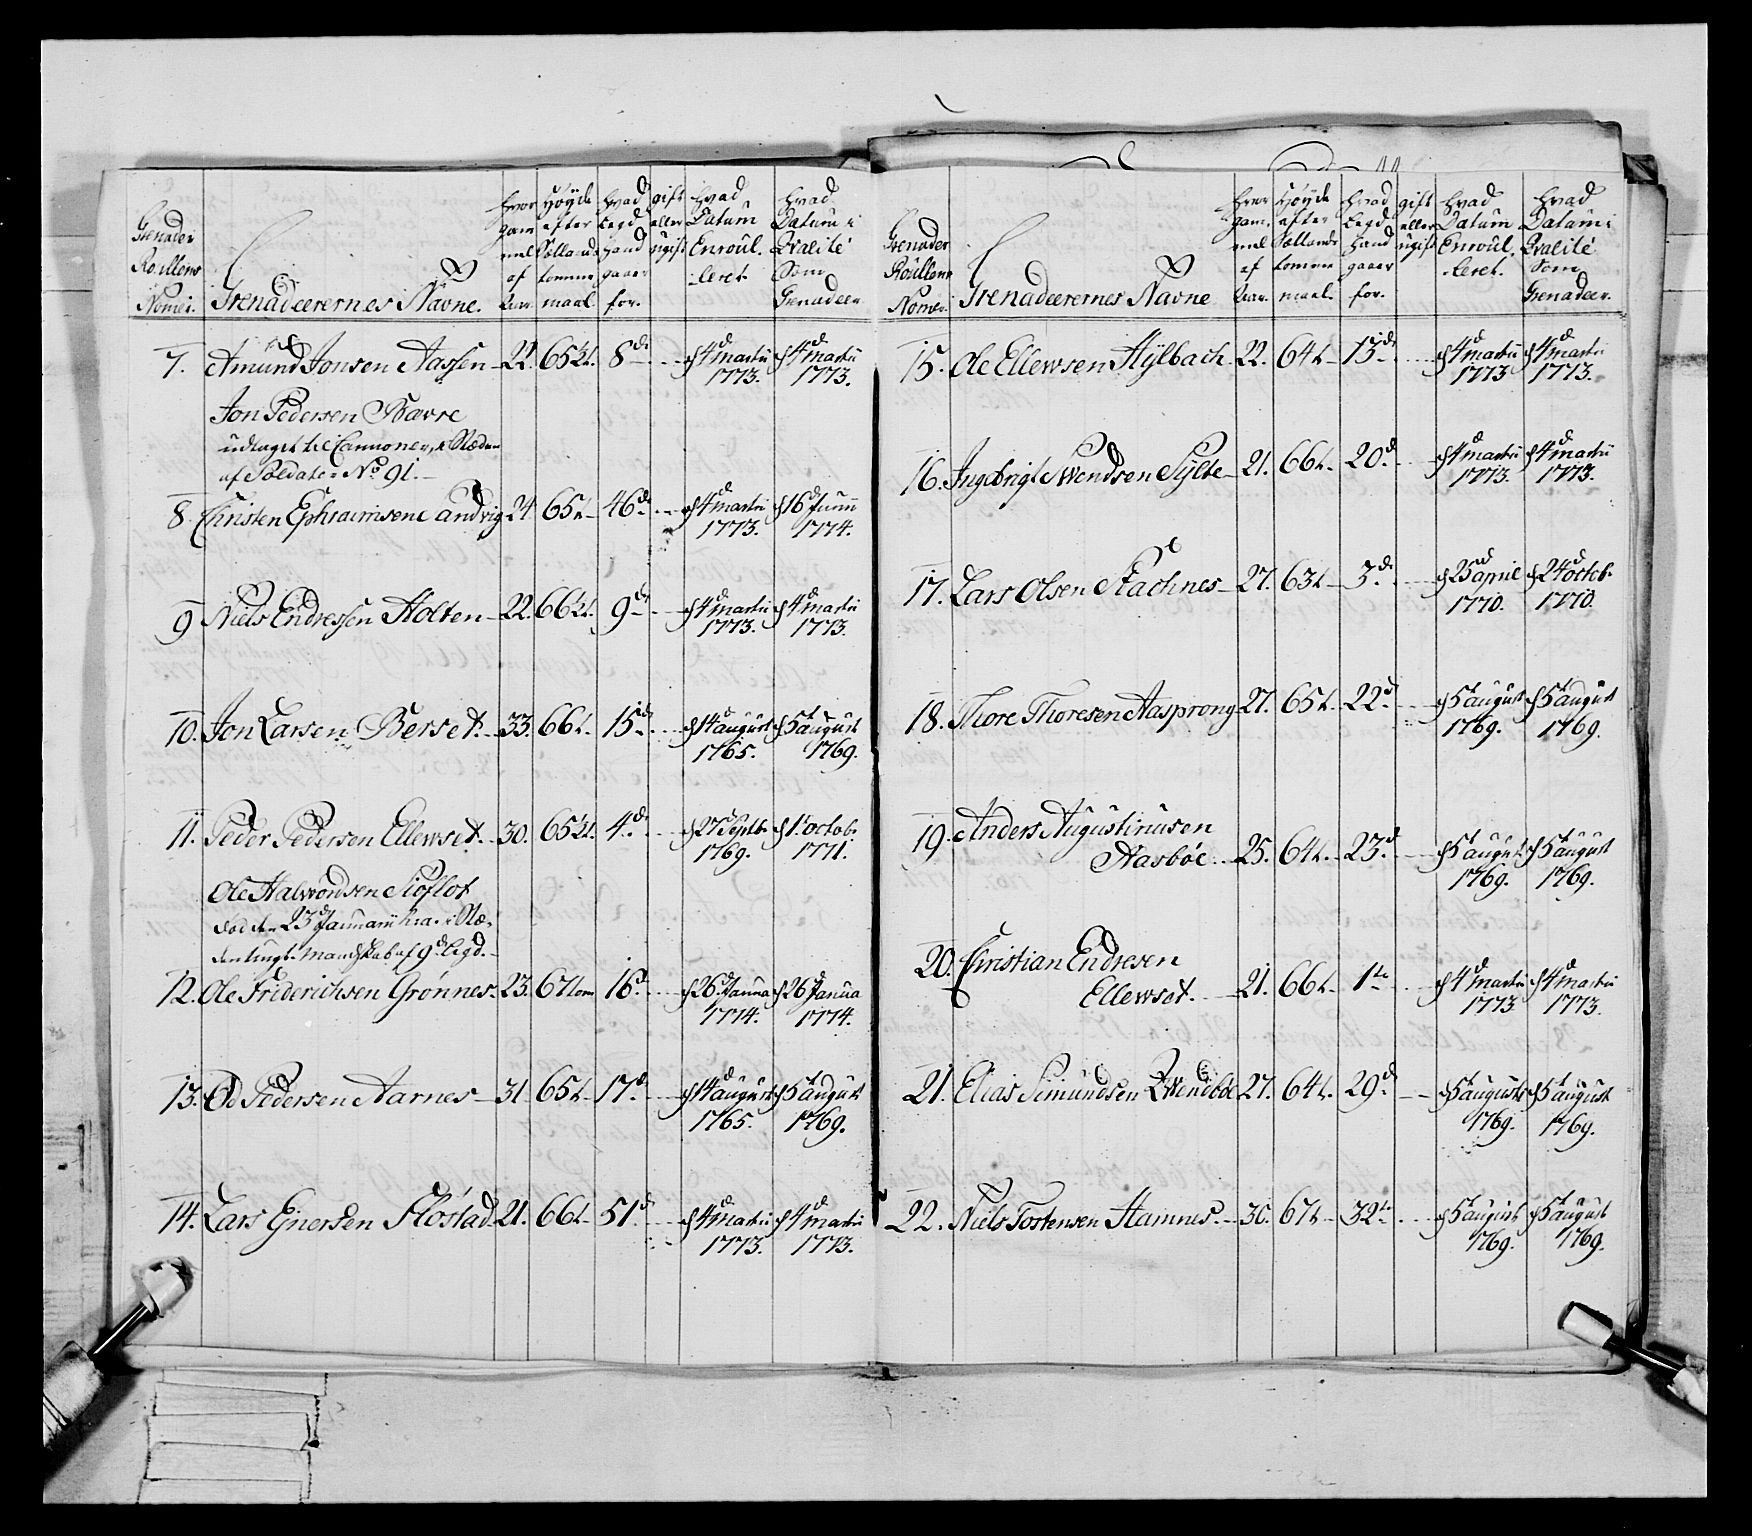 Grenadeer Roullens Nomer.
Grenadeerernes Navne.
hvor gam mel af Aar.
Høyde efter Sællands tomme maal
hvad Legd hand gaaer for.
gift eller ugift
hvad Datum Enroul. leret
hvad Datum i Qvalité Som Grenadeer.
7. Amund Jonsen Aassen 22. 65½t. 8de d 4d martii 1773. d 4d martii 1773.
Jon Pedersen Bavre
udtaget til Cannoner, i Stæden
af Soldater No 91.
8. Christen Ephraimsen Landvig 24 65t. 46de d 4d martii 1773. d 16d Junii 1774.
9 Niels Endressen Holten 22. 66½t. 9de d 4d martii 1773. d 4d martii 1773.
10. Jon Larsen Berset 33. 66t. 15de d 14d august 1765. d 5t august 1769.
11. Peder Pedersen Ellewset 30. 65½t. 4de d 27d Septb. 1769. d 1t octob. 1771.
Ole Halwordsen Sioflot
død den 23d Januarii hia. i Stæ-
den ungt mandskab af 9de Legd.
12. Ole Friderichsen Grønnes 23. 67tom 16d d 26d Janua 1774. d 26d Janua 1774.
13. Od Pedersen Aarnes 31 65t 17d d 14d august 1765. d 5t august 1769.
14. Lars Ejnersen Flostad 21. 66t 51d d 4d martii 1773. d 4d martii 1773.
Grenadeer Roullens Nomer.
Grenadeerernes Navne
hvor gam mel af Aar.
Høyde efter Sællands tomme maal.
hvad Legd hand gaaer for.
gift eller ugift
hvad Datum Enroul. leret.
hvad Datum i Qvalité Som Grenadeer.
15. Ole Ellewsen Hÿlbach 22. 64t 13de d 4d martii 1773 d 4d martii 1773.
16. Ingebrigt Swendsen Sÿlte 21. 66t. 20d d 4d martii 1773. d 4d martii 1773.
17. Lars Olsen Stachnes 27. 63t 3de d 25d april 1770. d 24d octob. 1770.
18. Thore Thoresen Aasprong 27. 65t. 22d d 5t august 1769. d 5t august 1769.
19. Anders Augustinusen
Aasbøe 25. 64t. 23d d 5t august 1769. d 5t august 1769.
20. Christian Endresen
Ellewset. 21. 66t 1te d 4d martii 1773 d 4d martii 1773.
21. Elias Simundsen Qvendbøe 27. 64t. 29d d 5t august 1769. d 5t august 1769.
22. Niels Tostensen Hamnes 30. 67t 32te d 5t august 1769. d 5t august 1769.